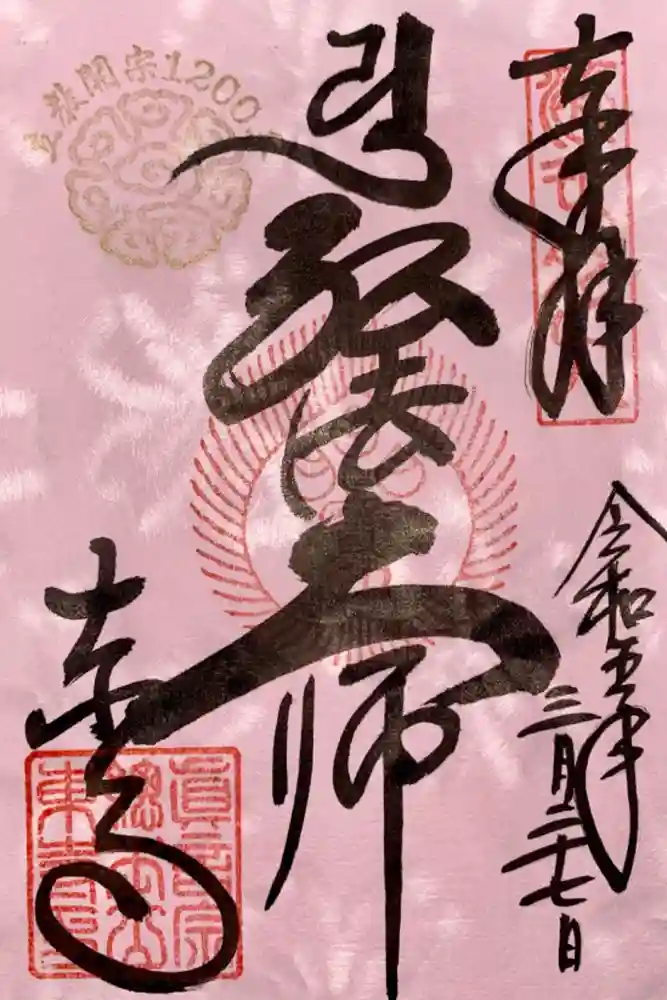 奉拝
令和五年
三月二十七日
弘法大師
東寺
立教開宗1200年
眞言宗
總本山
東寺